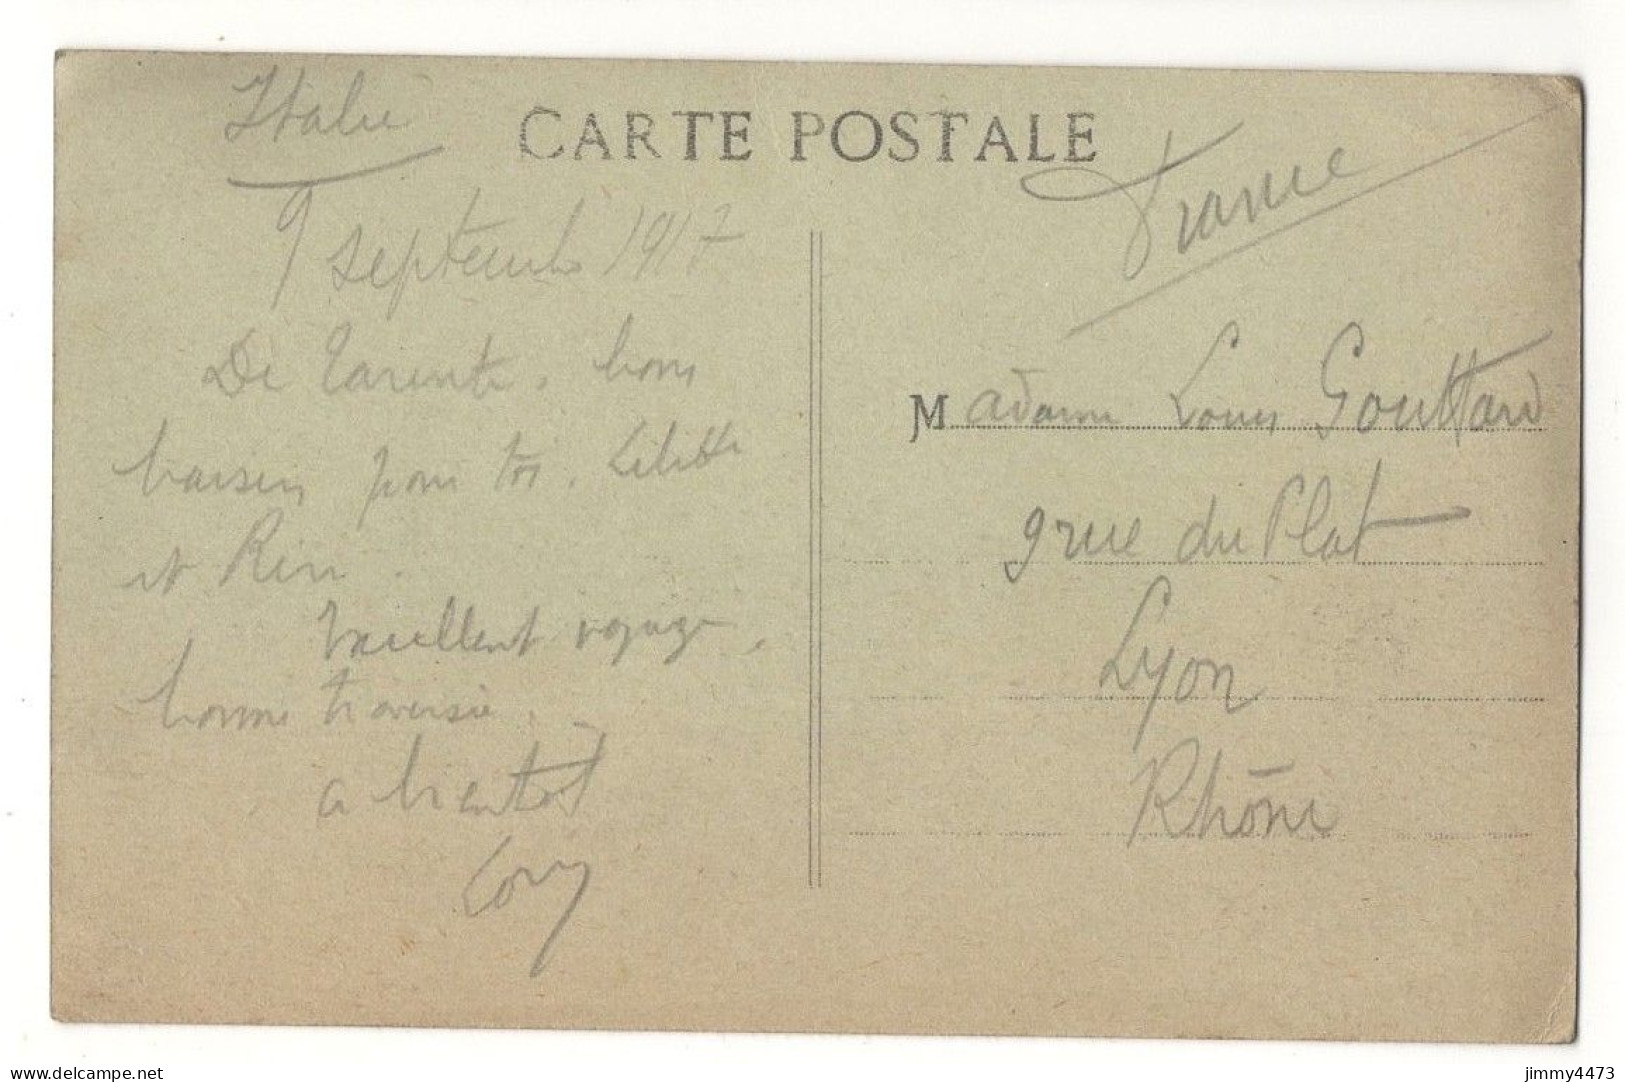 CARTE POSTALE
Italie
9 septembre 1917
De Tarente. bons
baisers pour toi, Lilette
et
Excellent voyage,
bonne traversée.
a bientôt
France
Madame Louis Gouttard
9 rue du Plat
Lyon
Rhône
delcampe.net
jimmy4473